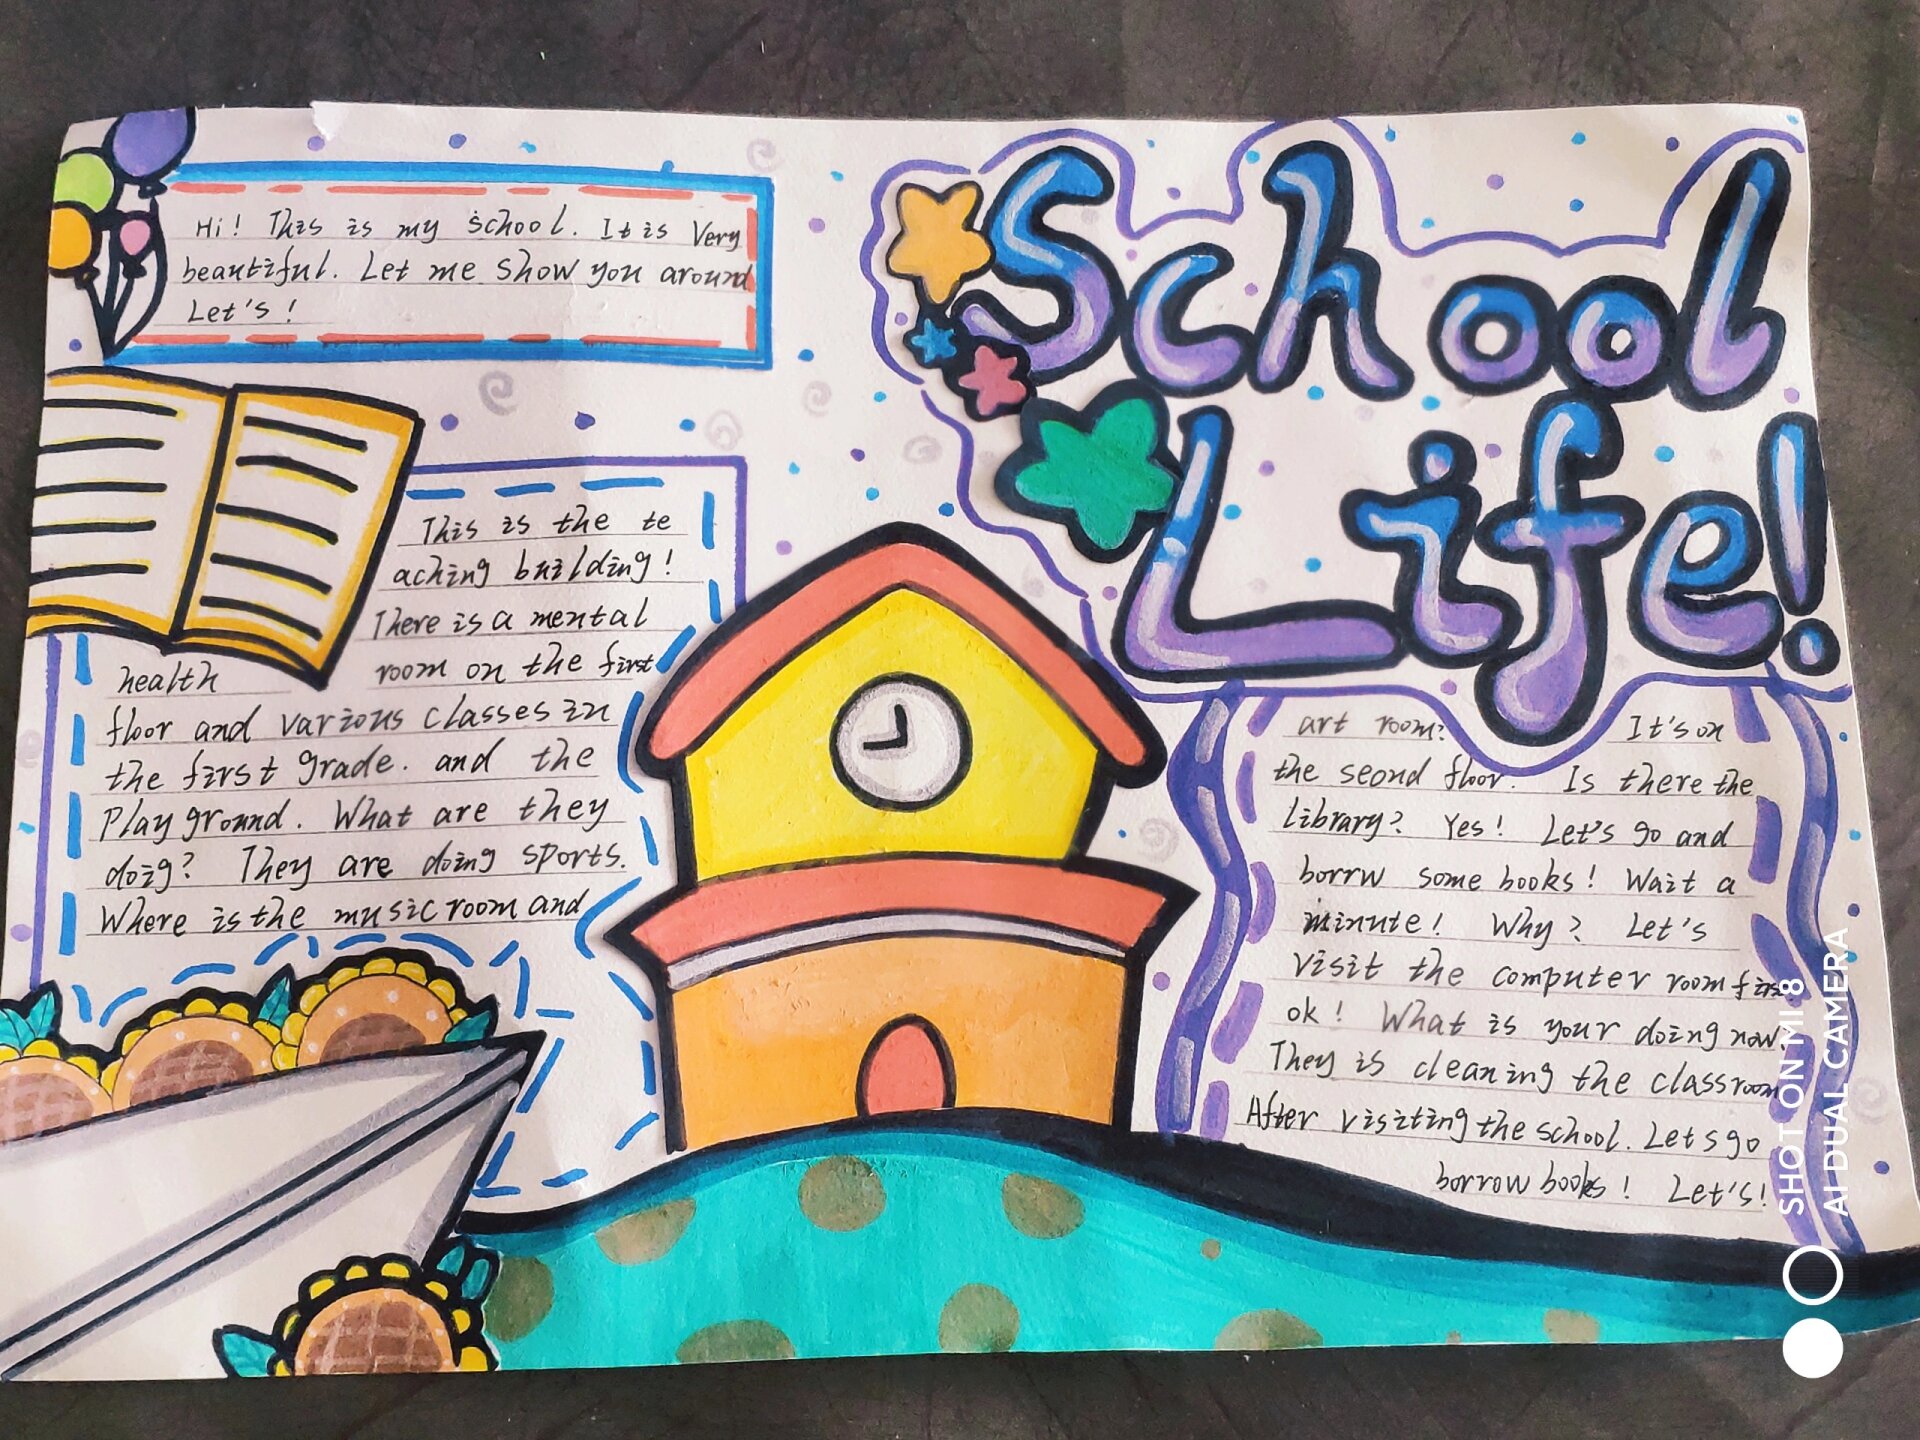 School
Life!
Hi! This is my school. It is Very
beautiful. Let me show you around
Let's!
This is the te
aching building!
There is a mental
health room on the first
floor and various classes in
the first grade. and the
Play ground. What are they
doig? They are doing sports.
Where is the music room and
art room? It's on
the seond floor. Is there the
library? Yes! Let's go and
borrw some books! Wait a
minute! Why? Let's
visit the computer room first
ok! What is your doing now.
They is cleaning the classroom
After visiting the school. Lets go
borrow books! Let's!
SHOT ON MI 8
AI DUAL CAMERA